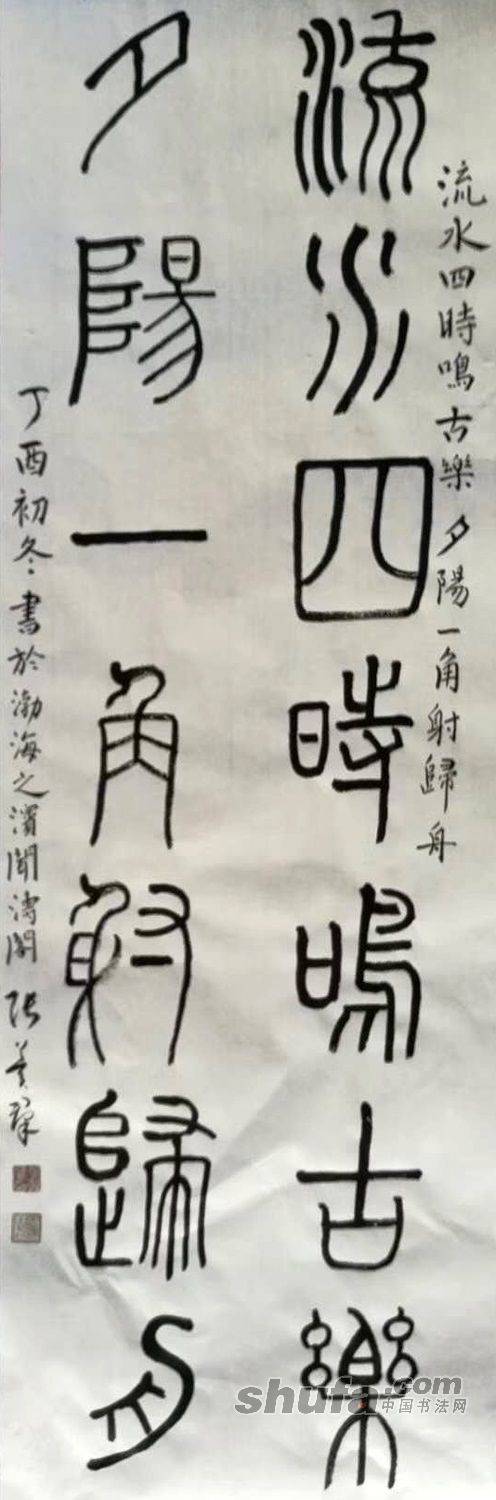 流水四時鳴古樂
夕陽一角射歸舟
流水四時鳴古樂夕陽一角射歸舟
丁酉初冬書於渤海之濱聞濤閣張
shufa.com
中国书法网